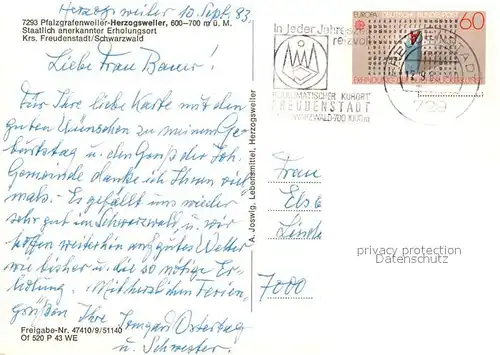 Herzogsweiler 10. Sept. 83
7293 Pfalzgrafenweiler-Herzogsweiler, 600–700 m ü. M.
Staatlich anerkannter Erholungsort
Krs. Freudenstadt/Schwarzwald
Liebe Frau Bauer!
Für Ihre liebe Karte mit den
guten Wünschen zu meinem Ge-
burtstag u. den Gruß der Joh.
Gemeinde danke ich Ihnen viel-
mals. - Es gefällt uns wieder
sehr gut im Schwarzwald, u. wir
hoffen weiterhin auf gutes Wetter
wie bisher u. die so nötige Er-
holung. Mit herzlichen Ferien-
grüßen Ihre Irmgard Ostertag
u. Schwester.
Freigabe-Nr. 47410/9/51140
Of 520 P 43 WE
A. Joswig, Lebensmittel, Herzogsweiler
In jeder Jahreszeit
reizvoll
KURORT
FREUDENSTADT
SCHWARZWALD
EUROPA
60
DEUTSCHE BUNDESPOST
FREUDENSTADT
729
Frau
Else
Linde
7000
privacy protection
Datenschutz